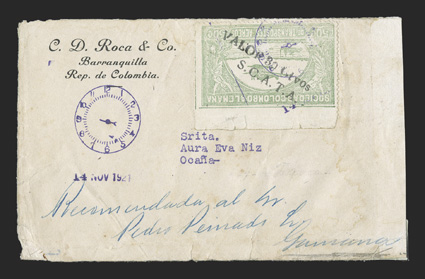 C. D. Roca & Co.
Barranquilla
Rep. de Colombia.
VALOR 30 Ctvos
S.C.A.T.A.
SOCIEDAD COLOMBO ALEMANA
Srita.
Aura Eva Niz
Ocaña
14 NOV 1921
Recomendada al Sr.
Pedro Peinado
Gamarra